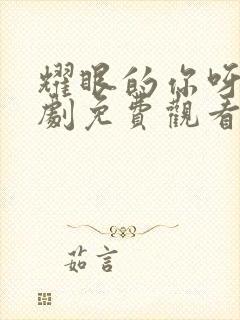 耀眼的你呀
劇免費觀看
茹言